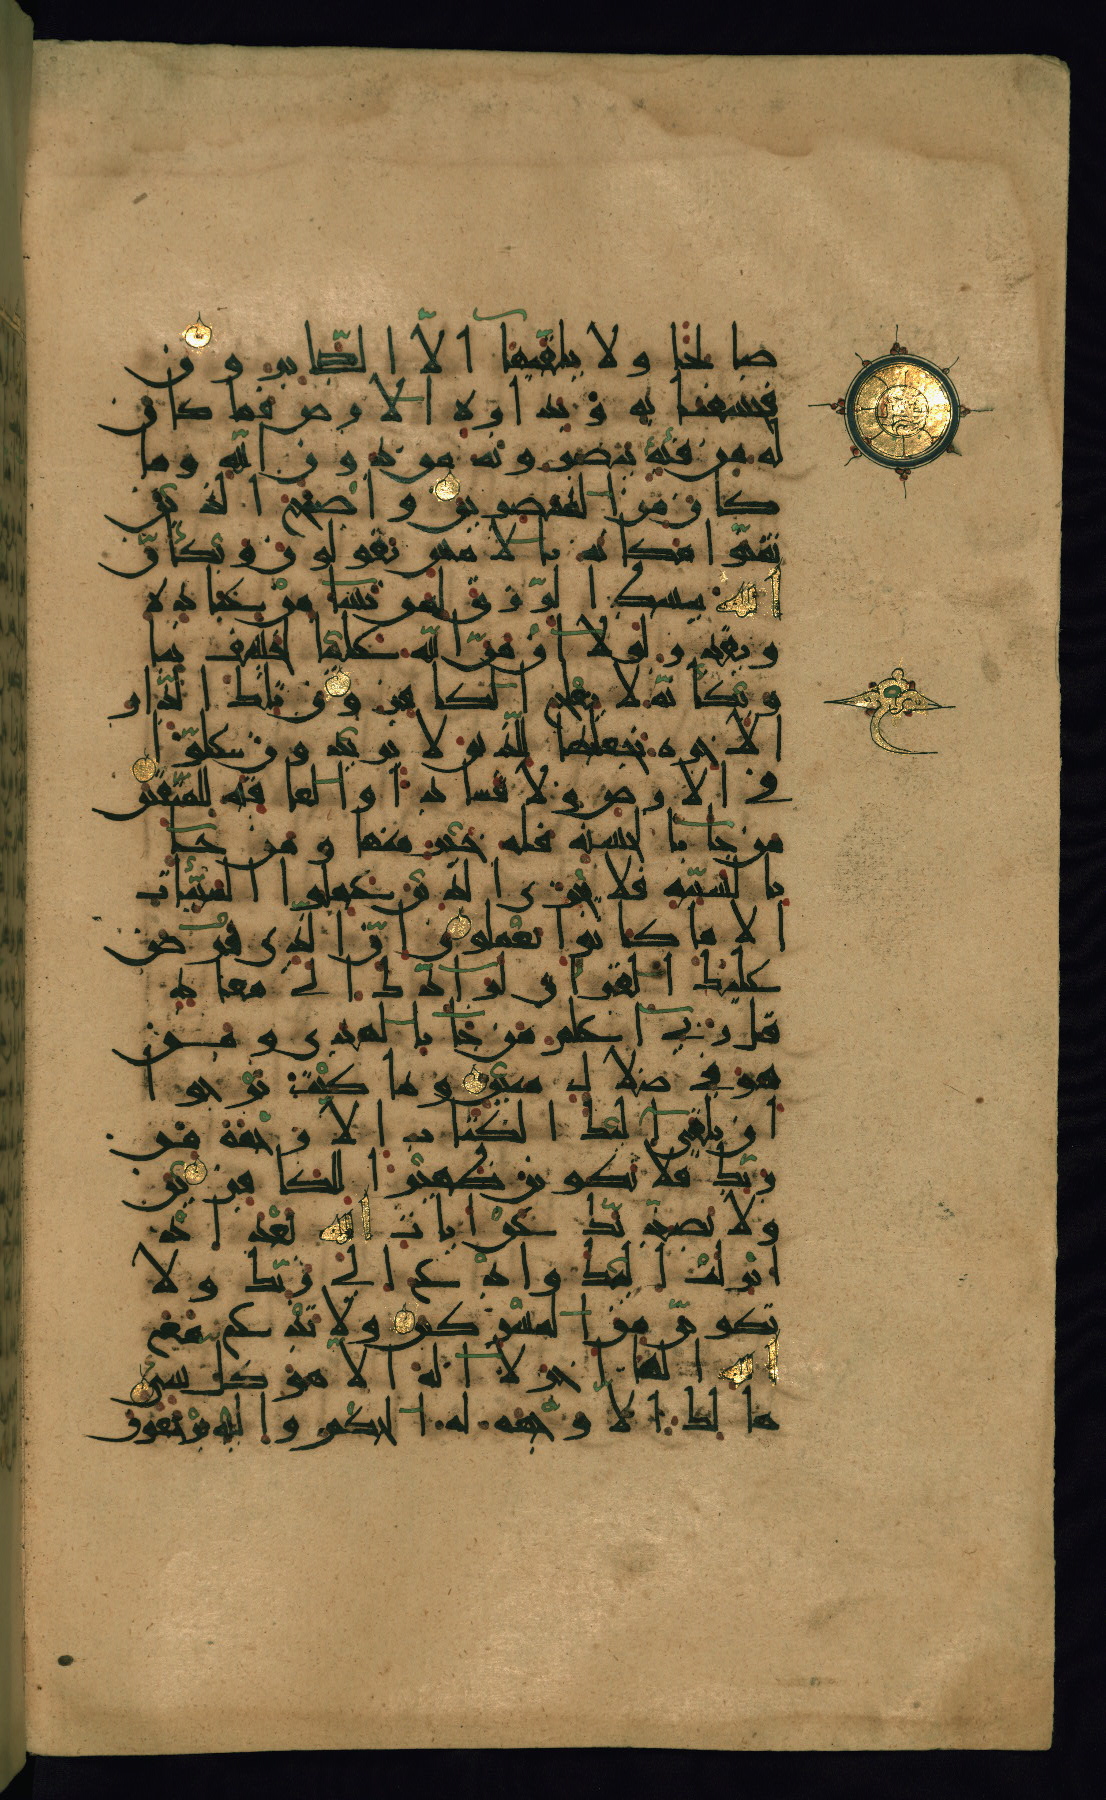 صالحا ولا يلقيها الا الصابرون
فخسفنا به وبداره الارض فما كان
له من فئة ينصرونه من دون الله وما
كان من المنتصرين واصبح الذين
تمنوا مكانه بالامس يقولون ويكان
الله يبسط الرزق لمن يشا من عباده
ويقدر لولا ان من الله علينا لخسف بنا
ويكانه لا يفلح الكافرون تلك الدار
الاخرة نجعلها للذين لا يريدون علوا
في الارض ولا فسادا والعاقبة للمتقين
من جا بالحسنة فله خير منها ومن جا
بالسيئة فلا يجزى الذين عملوا السيئات
الا ما كانوا يعملون ان الذي فرض
عليك القران لرادك الى معاد
قل ربي اعلم من جا بالهدى ومن
هو في ضلال مبين وما كنت ترجوا
ان يلقى اليك الكتاب الا رحمة من
ربك فلا تكونن ظهيرا للكافرين
ولا يصدنك عن ايات الله بعد اذ
انزلت اليك وادع الى ربك ولا
تكونن من المشركين ولا تدع مع
الله الها اخر لا اله الا هو كل شيء
هالك الا وجهه له الحكم واليه ترجعون